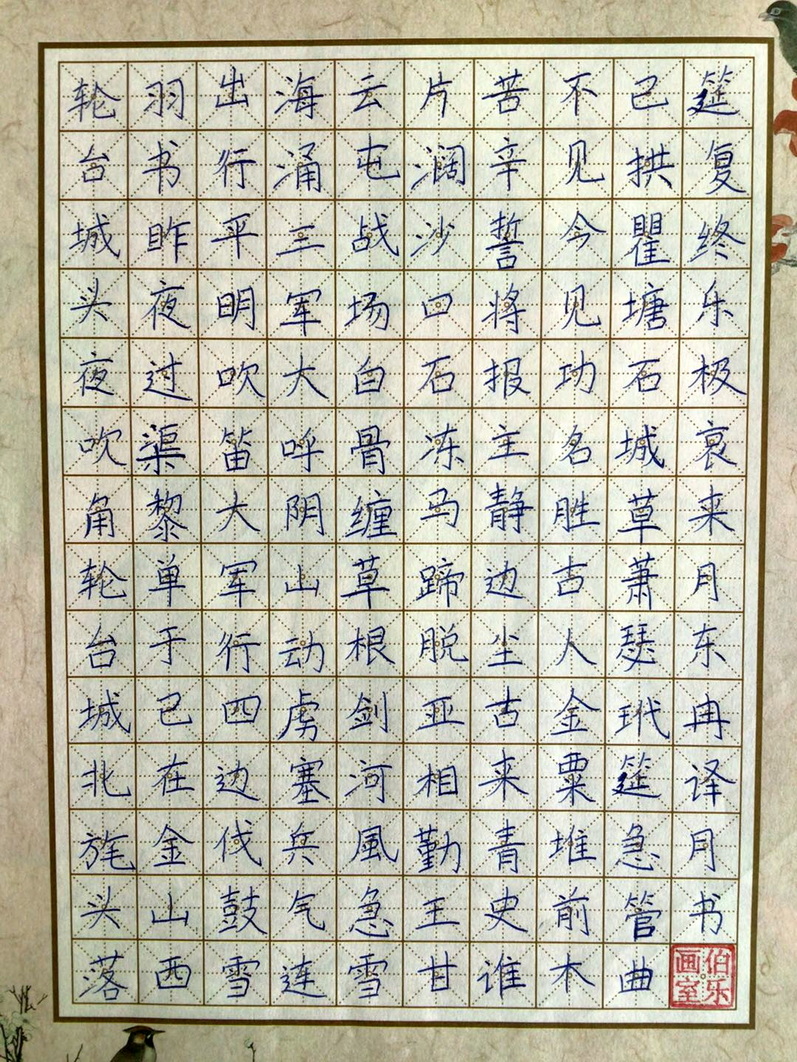 轮台城头夜吹角轮台城北旄头落
羽书昨夜过渠黎单于已在金山西
出行平明吹笛大军行四边伐鼓雪
海涌三军大呼阴山动虏塞兵气连
云屯战场白骨缠草根剑河風急雪
片阔沙口石冻马蹄脱亚相勤王甘
苦辛誓将报主静边尘古来青史谁
不见今见功名胜古人金粟堆前木
已拱瞿塘石城草萧瑟玳筵急管曲
筵复终乐极哀来月东冉译月书
伯乐画室